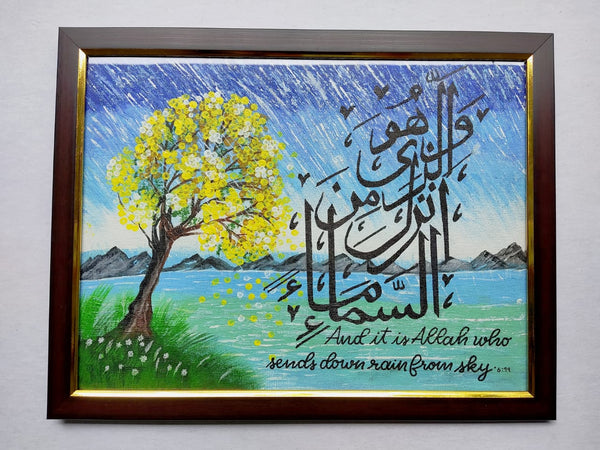 وَهُوَ
الَّذِي
انزَلَ مِنَ
السَّمَاءِ مَاءً
And it is Allah who
sends down rain from sky 6:99